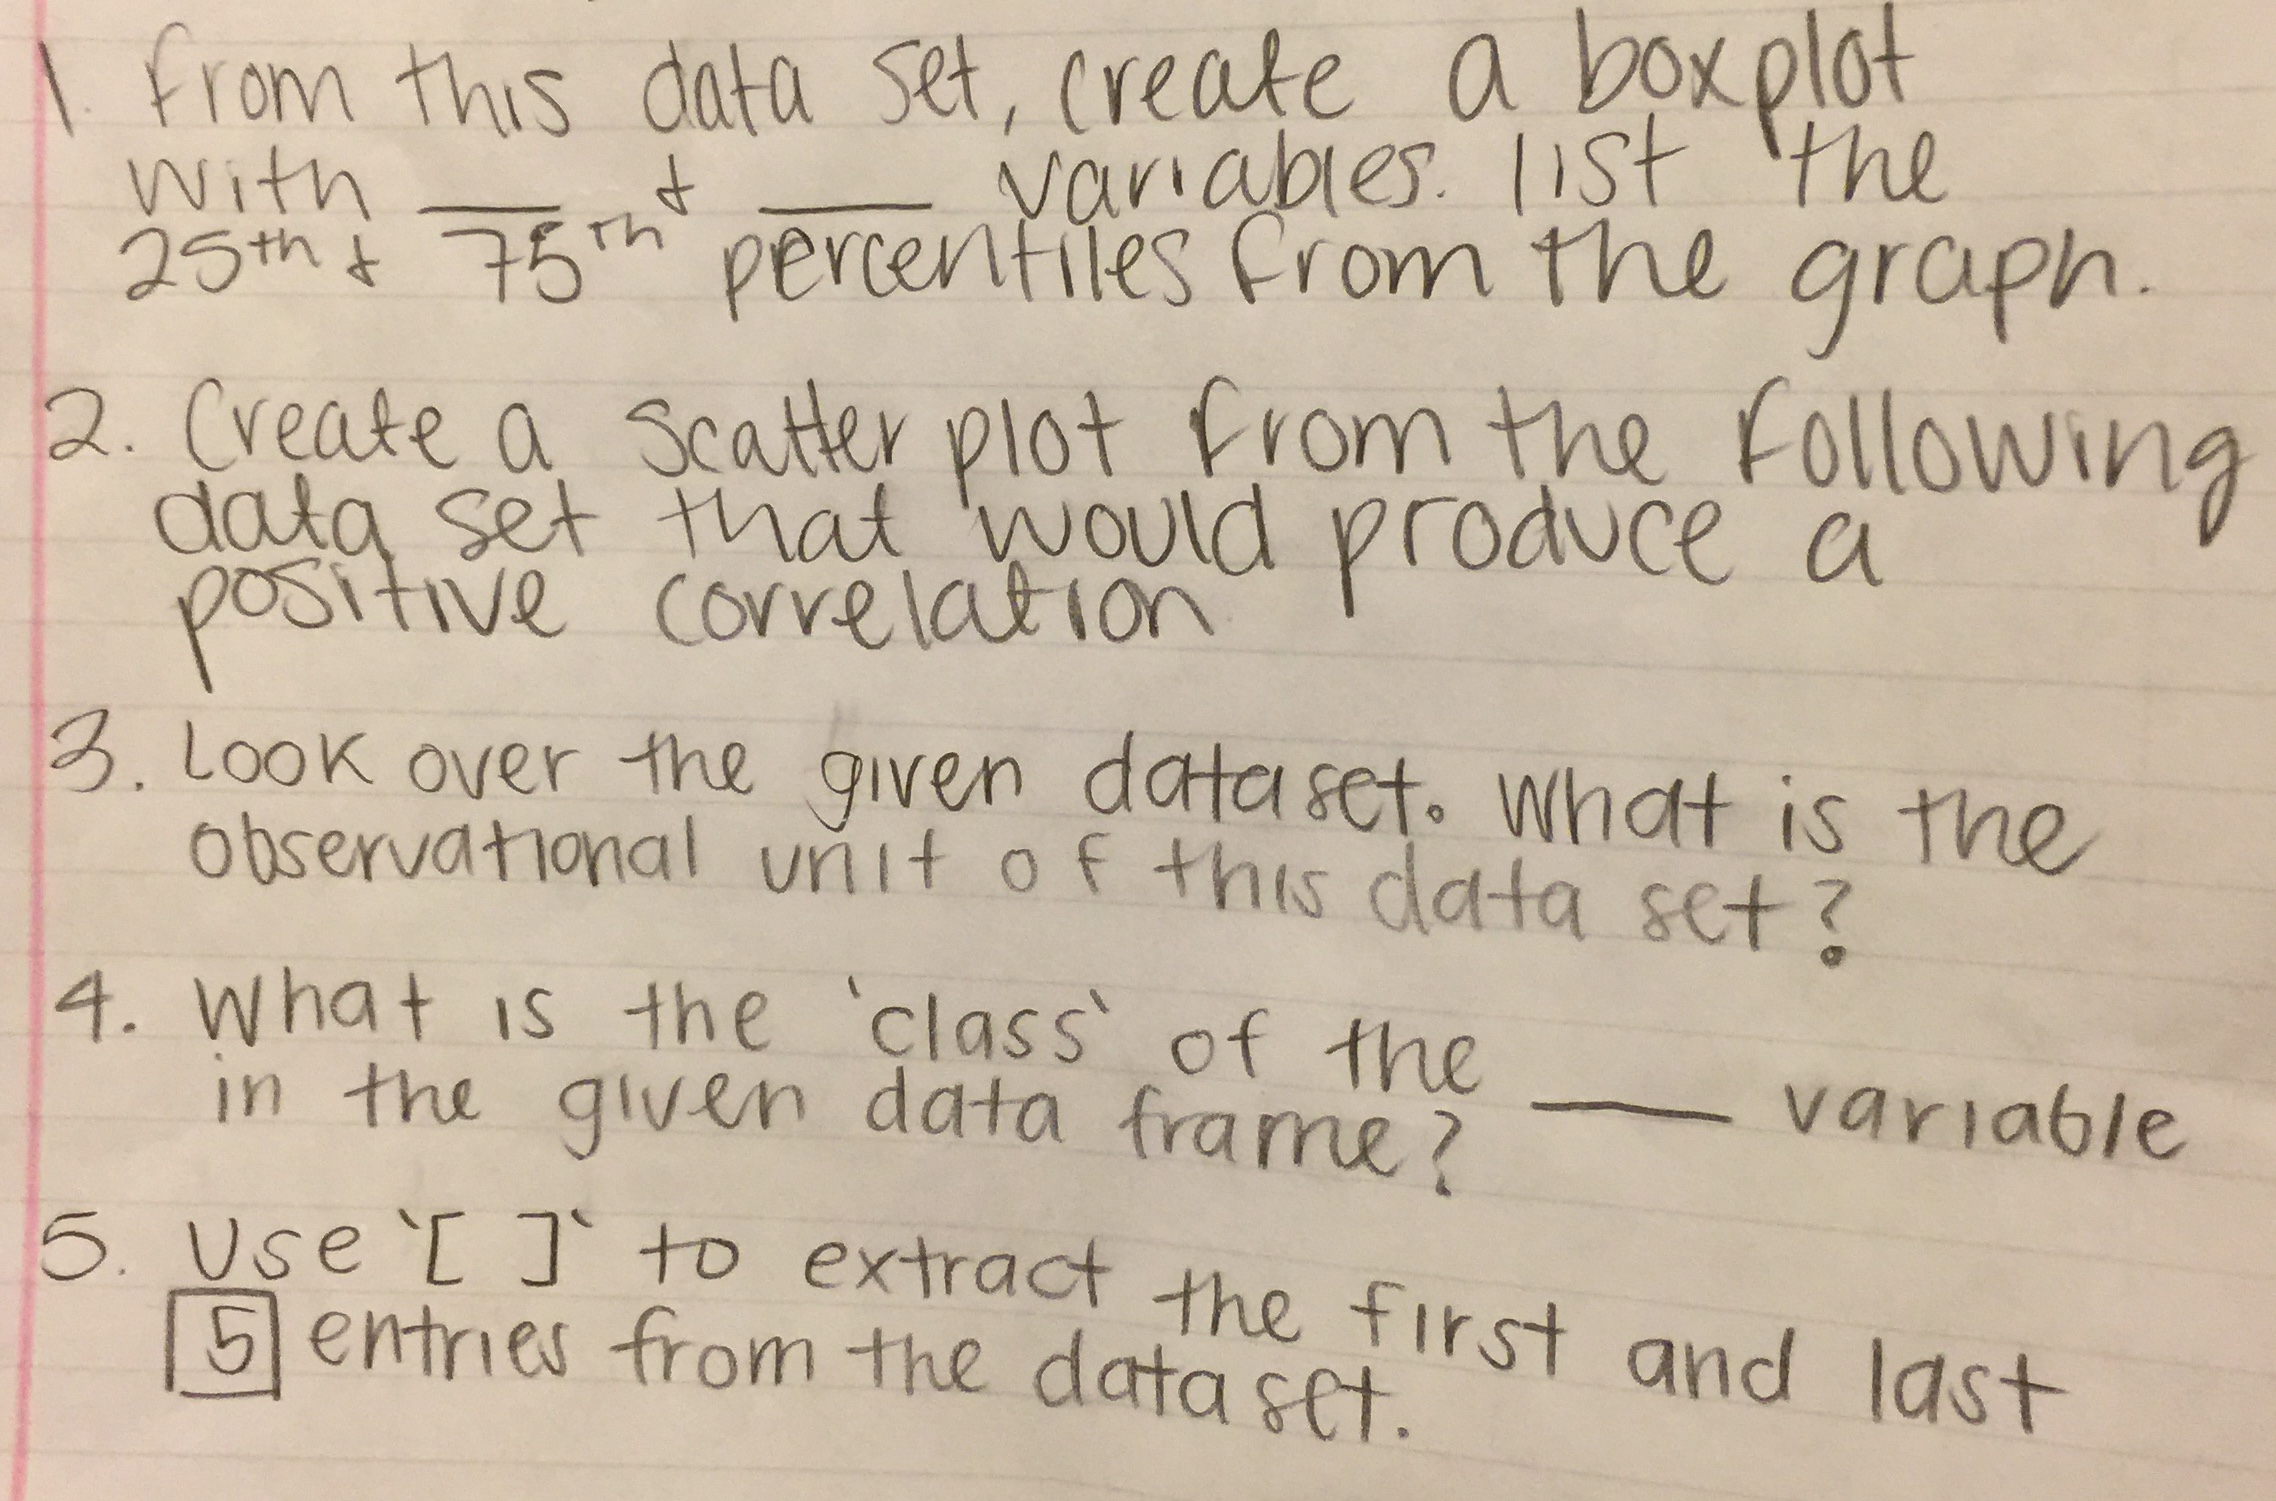 1. From this data set, create a boxplot
with ___ & ___ variables. list the
25th & 75th percentiles from the graph.
2. Create a scatter plot from the following
data set that would produce a
positive correlation
3. Look over the given dataset. What is the
observational unit of this data set?
4. What is the `class` of the ___ variable
in the given data frame?
5. Use `[ ]` to extract the first and last
5 entries from the dataset.